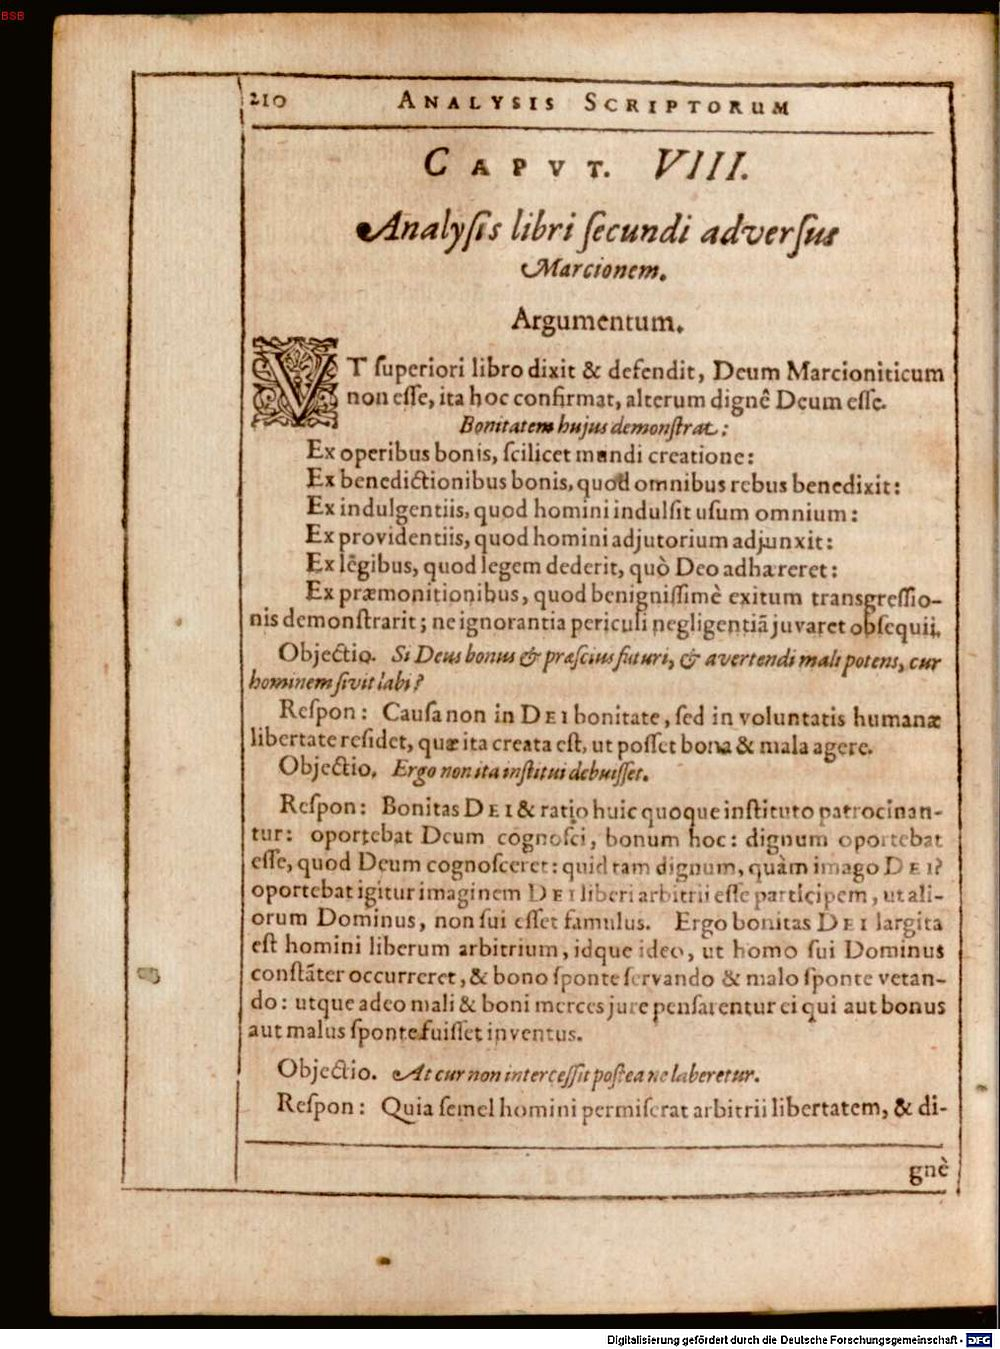 BSB
210 ANALYSIS SCRIPTORUM
CAPVT. VIII.
Analyſis libri ſecundi adverſus
Marcionem.
Argumentum.
VT ſuperiori libro dixit & defendit, Deum Marcioniticum
non eſſe, ita hoc confirmat, alterum dignê Deum eſſe.
Bonitatem hujus demonſtrat:
Ex operibus bonis, ſcilicet mundi creatione:
Ex benedictionibus bonis, quod omnibus rebus benedixit:
Ex indulgentiis, quod homini indulſit uſum omnium:
Ex providentiis, quod homini adjutorium adjunxit:
Ex lêgibus, quod legem dederit, quò Deo adhareret:
Ex præmonitionibus, quod benigniſſimè exitum transgreſſio-
nis demonſtrarit; ne ignorantia periculi negligentiã juvaret obſequii.
Objectio. Si Deus bonus & præſcius futuri, & avertendi mali potens, cur
hominem ſivit labi?
Reſpon: Cauſa non in DEI bonitate, ſed in voluntatis humanæ
libertate reſidet, quæ ita creata eſt, ut poſſet bona & mala agere.
Objectio. Ergo non ita inſtitui debuiſſet.
Reſpon: Bonitas DEI & ratio huic quoque inſtituto patrocinan-
tur: oportebat Deum cognoſci, bonum hoc: dignum oportebat
eſſe, quod Deum cognoſceret: quid tam dignum, quàm imago DEI?
oportebat igitur imaginem DEI liberi arbitrii eſſe participem, ut ali-
orum Dominus, non ſui eſſet famulus. Ergo bonitas DEI largita
eſt homini liberum arbitrium, idque ideo, ut homo ſui Dominus
conſtãter occurreret, & bono ſponte ſervando & malo ſponte vetan-
do: utque adeo mali & boni merces jure penſarentur ei qui aut bonus
aut malus ſponte fuiſſet inventus.
Objectio. At cur non interceſſit poſtea ne laberetur.
Reſpon: Quia ſemel homini permiſerat arbitrii libertatem, & di-
gnè
Digitalisierung gefördert durch die Deutsche Forschungsgemeinschaft - DFG